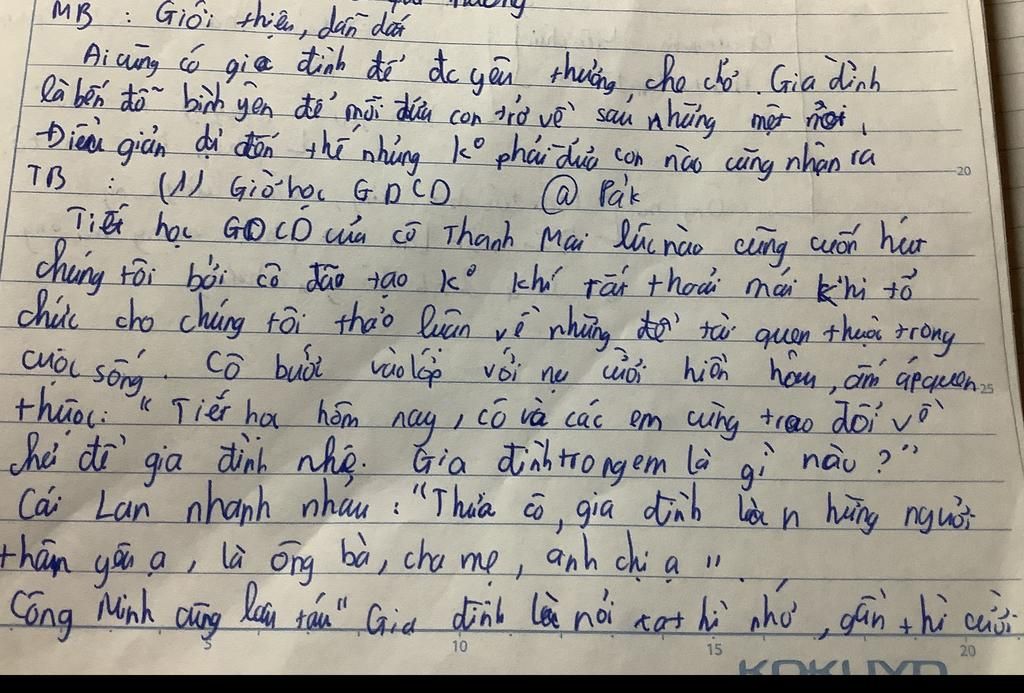 MB : Giới thiệu, dẫn dắt
Ai cũng có gia đình để đc yêu thương, che chở. Gia đình
là bến đỗ bình yên để mỗi đứa con trở về sau những mệt mỏi,
Điều giản dị đến thế nhưng k° phải đứa con nào cũng nhận ra
20
TB : (1) Giờ học GDCD @ Pak
Tiết học GDCD của cô Thanh Mai lúc nào cũng cuốn hút
chúng tôi bởi cô đào tạo k° khí rất thoải mái khi tổ
chức cho chúng tôi thảo luận về những đề tài quen thuộc trong
cuộc sống. Cô bước vào lớp với nụ cười hiền hậu, ấm áp quen
25
thuộc: "Tiết học hôm nay, cô và các em cùng trao đổi về
chủ đề gia đình nhé. Gia đình trong em là gì nào?"
Cái Lan nhanh nhảu: "Thưa cô, gia đình là những người
thân yêu ạ, là ông bà, cha mẹ, anh chị ạ".
Công Minh cũng lau táu" Gia đình là nơi xa thì nhớ, gần thì cười
5 10 15 20
KOKUYO